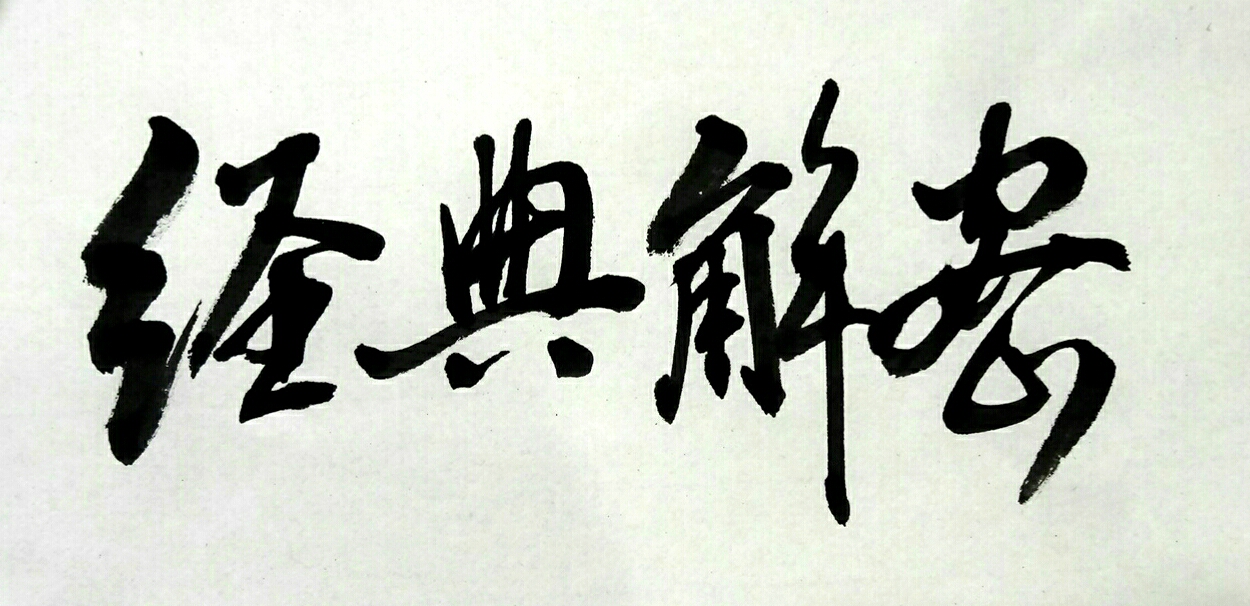 经典解密